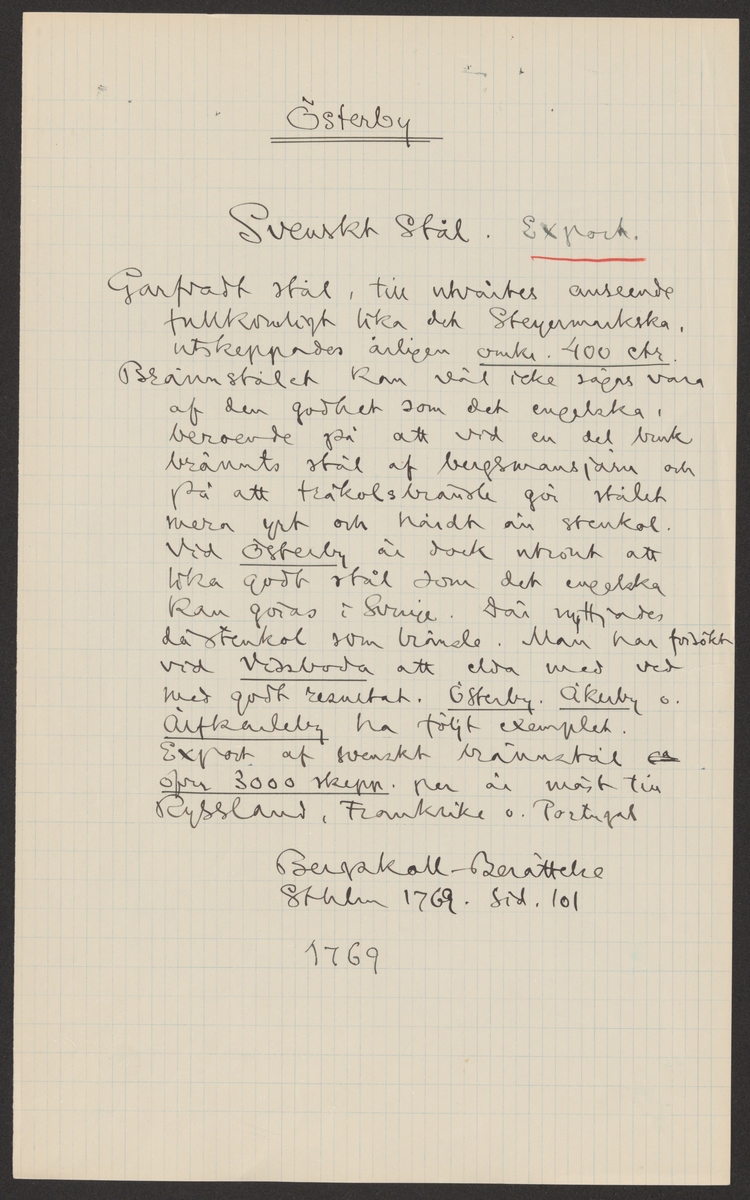 Österby
Svenskt Stål. Export.
Garfvadt stål, till utvärtes anseende
fullkomligt lika det Steyermarkska,
utskeppades årligen omkr. 400 ctr.
Brännstålet kan väl icke sägas vara
af den godhet som det engelska,
beroende på att vid en del bruk
brännts stål af bergsmansjärn och
på att träkolsbränsle gör stålet
mera yrt och hårdt än stenkol.
Vid Österby är dock utrönt att
lika godt stål som det engelska
kan göras i Sverige. Där nyttjades
då stenkol som bränsle. Man har försökt
vid Vedsboda att elda med ved
med godt resultat. Österby. Åkerby o.
Älfkarleby ha följt exemplet.
Export af svenskt brännstål
öfver 3000 skepp. per år mäst till
Ryssland, Frankrike o. Portugal
Bergskoll-Berättelse
Sthlm 1769. Sid. 101
1769